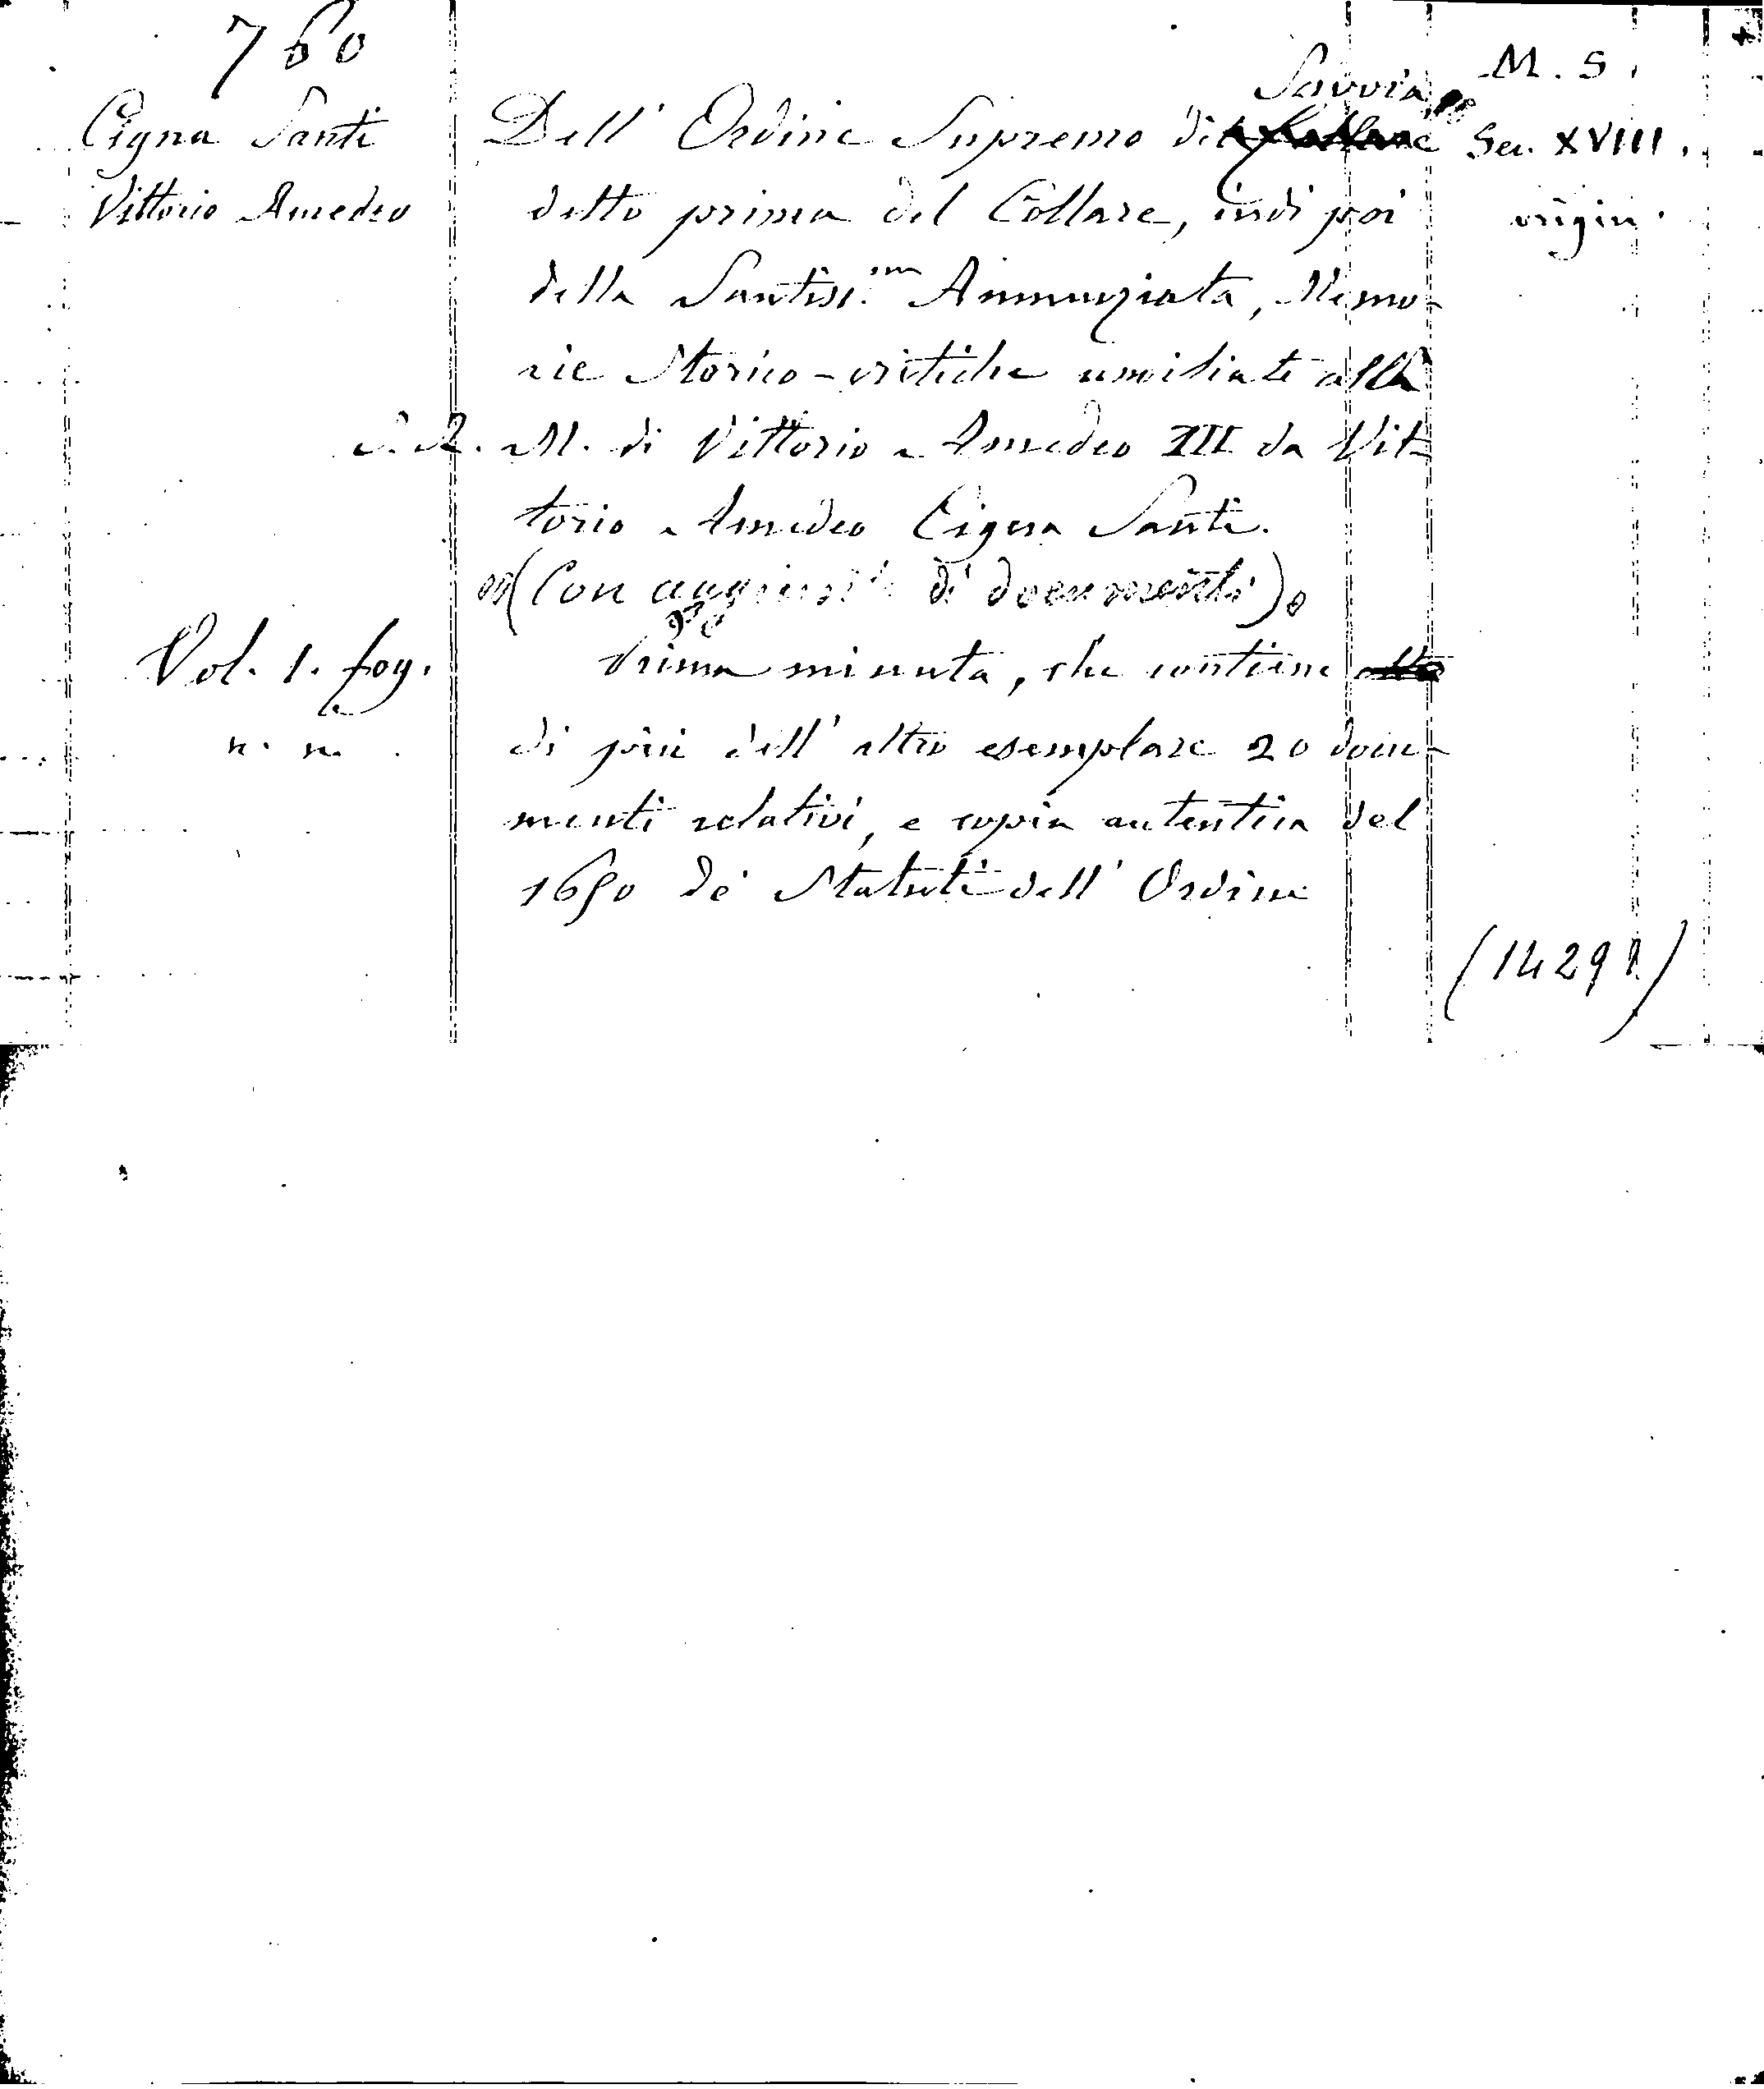 760
M. S.
Savoia
Cigna Santi
Dell' Ordine Supremo di
Sec. XVIII.
Vittorio Amedeo
detto prima del Collare, indi poi
origin.
della Santiss.ma Annunziata, Memo-
rie Storico-critiche umiliate alla
S. R. M. di Vittorio Amedeo III da Vit-
torio Amedeo Cigna Santi.
(Con aggiunta di documenti)
Vol. 1. fog.
Prima minuta, che contiene
n. n.
di più dell' altro esemplare 20 docu-
menti relativi, e copia autentica del
dè Statuti dell' Ordine